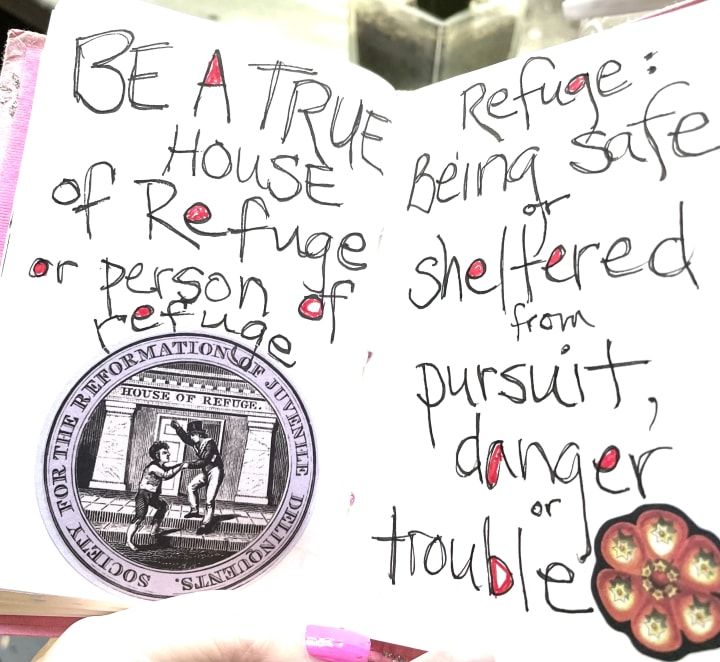 BE A TRUE
HOUSE
of Refuge
or person of
refuge
SOCIETY FOR THE REFORMATION OF JUVENILE DELINQUENTS.
HOUSE OF REFUGE.
Refuge:
Being safe
or
sheltered
from
pursuit,
danger
or
trouble